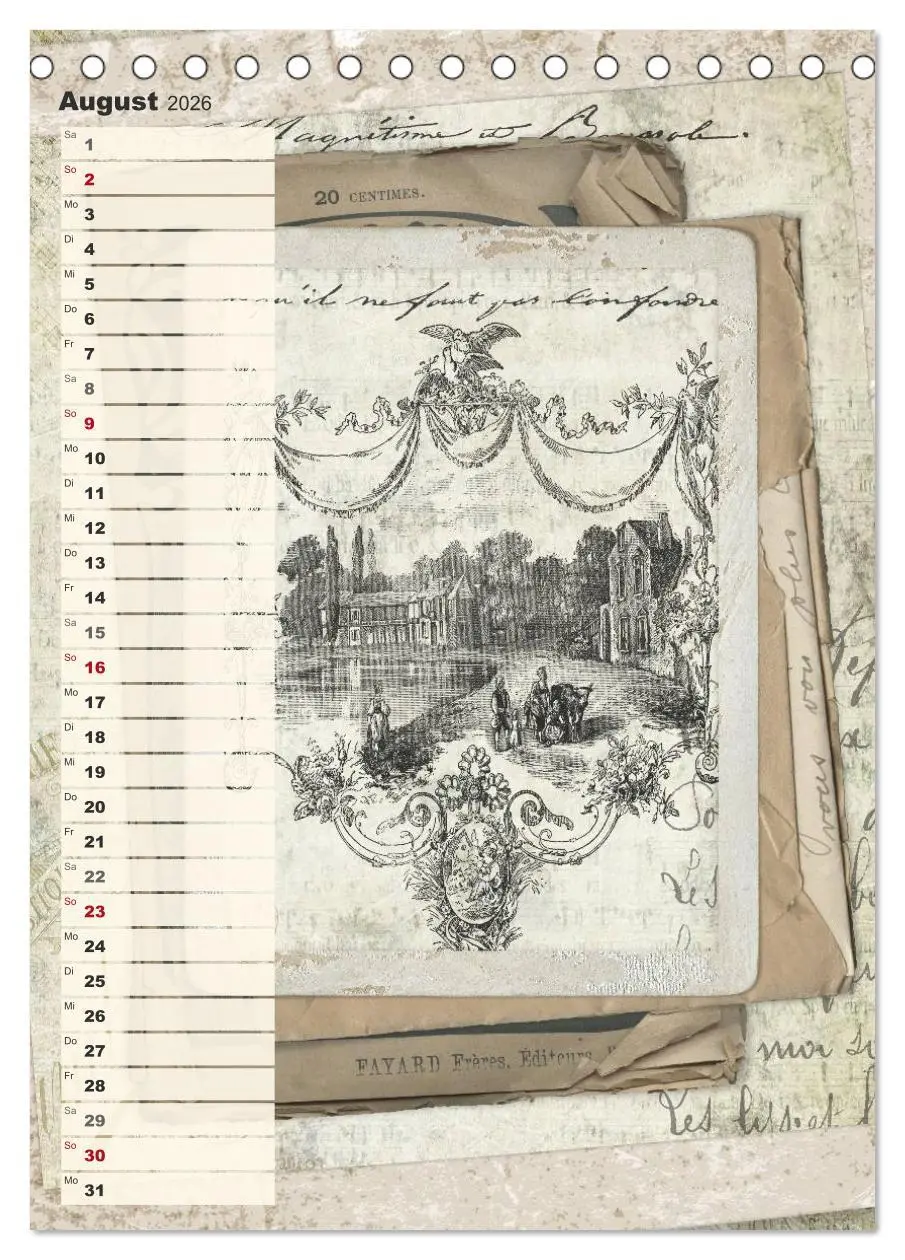 August 2026
Magnétisme et Boussole.
Sa 1
So 2
20 CENTIMES.
Mo 3
Di 4
Mi 5
qu'il ne faut pas confondre
Do 6
Fr 7
Sa 8
So 9
Mo 10
Di 11
Mi 12
Do 13
Fr 14
Sa 15
So 16
Mo 17
Di 18
Mi 19
Do 20
Fr 21
Sa 22
So 23
Mo 24
Di 25
Mi 26
Do 27
FAYARD Frères, Éditeurs
Fr 28
Sa 29
So 30
Mo 31
vous
Les
Les